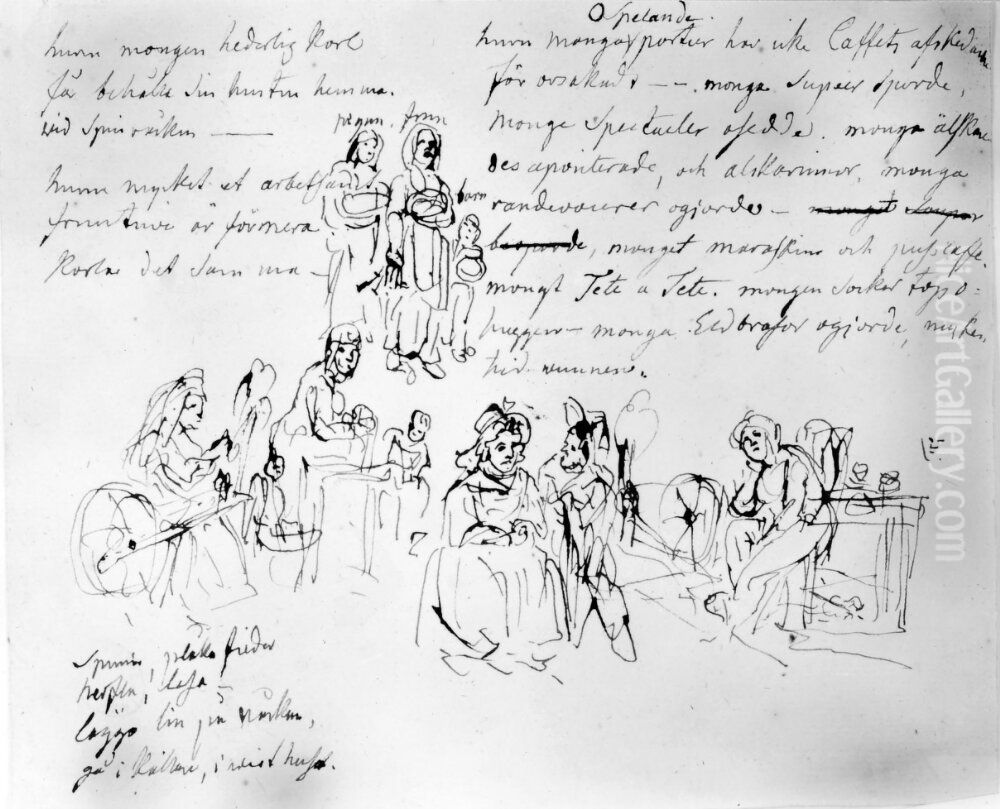 huru mongen hederlig Karl
får behålla sin hustru hemma.
vid Spinråcken —
huru mycket et arbetsamt
fruntimer är förmera
Karlar det samma —
pigan. frun
barn
Ospelande.
huru monga portier har icke Caffets afskedande
för orsakadt — — monga Supeer sporde,
monge Spectacler osedde. monga älskare
desapointerade, och älskarinnor, monga
randevouer ogjorde — monget
monget maraskino och puscaffe.
mongt Tete a Tete. mongen socker topp o=
huggen — monga Eldbrasor ogjorde, mycken
tid vunnen.
Spinna, plåka fieder
hespla,
lägga lin på råcken,
gå i Källare, i visthuset.
LikeArtGallery.com